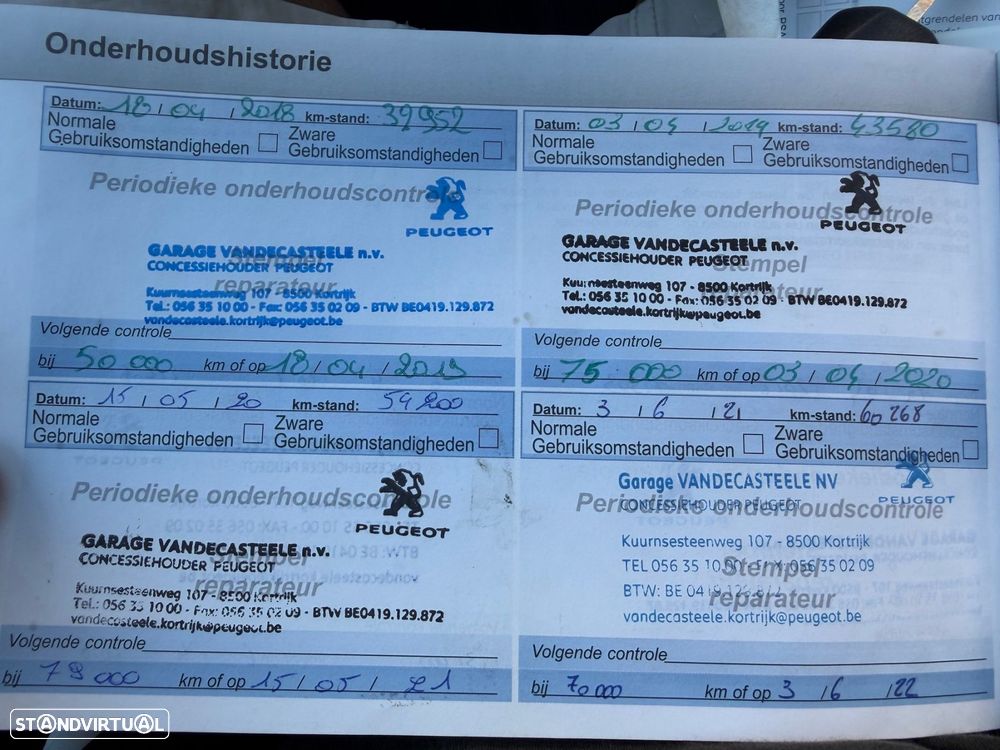 Onderhoudshistorie
Datum: 18 / 04 / 2018 km-stand: 39952
Normale Gebruiksomstandigheden
Zware Gebruiksomstandigheden
Periodieke onderhoudscontrole
PEUGEOT
GARAGE VANDECASTEELE n.v.
CONCESSIEHOUDER PEUGEOT
Stempel reparateur
Kuurnsesteenweg 107 - 8500 Kortrijk
Tel.: 056 35 10 00 - Fax: 056 35 02 09 - BTW BE0419.129.872
vandecasteele.kortrijk@peugeot.be
Volgende controle
bij 50 000 km of op 18 / 04 / 2019
Datum: 03 / 04 / 2019 km-stand: 43580
Normale Gebruiksomstandigheden
Zware Gebruiksomstandigheden
Periodieke onderhoudscontrole
PEUGEOT
GARAGE VANDECASTEELE n.v.
CONCESSIEHOUDER PEUGEOT
Stempel reparateur
Kuurnsesteenweg 107 - 8500 Kortrijk
Tel.: 056 35 10 00 - Fax: 056 35 02 09 - BTW BE0419.129.872
vandecasteele.kortrijk@peugeot.be
Volgende controle
bij 75 000 km of op 03 / 04 / 2020
Datum: 15 / 05 / 20 km-stand: 54200
Normale Gebruiksomstandigheden
Zware Gebruiksomstandigheden
Periodieke onderhoudscontrole
PEUGEOT
GARAGE VANDECASTEELE n.v.
CONCESSIEHOUDER PEUGEOT
Stempel reparateur
Kuurnsesteenweg 107 - 8500 Kortrijk
Tel.: 056 35 10 00 - Fax: 056 35 02 09 - BTW BE0419.129.872
vandecasteele.kortrijk@peugeot.be
Volgende controle
bij 79000 km of op 15 / 05 / 21
Datum: 3 / 6 / 21 km-stand: 60 268
Normale Gebruiksomstandigheden
Zware Gebruiksomstandigheden
Garage VANDECASTEELE NV
PEUGEOT
Periodieke onderhoudscontrole
CONCESSIEHOUDER PEUGEOT
Kuurnsesteenweg 107 - 8500 Kortrijk
Stempel reparateur
TEL 056 35 10 00 - FAX: 056 35 02 09
BTW: BE 0419.129.872
vandecasteele.kortrijk@peugeot.be
Volgende controle
bij 70000 km of op 3 / 6 / 22
STANDVIRTUAL